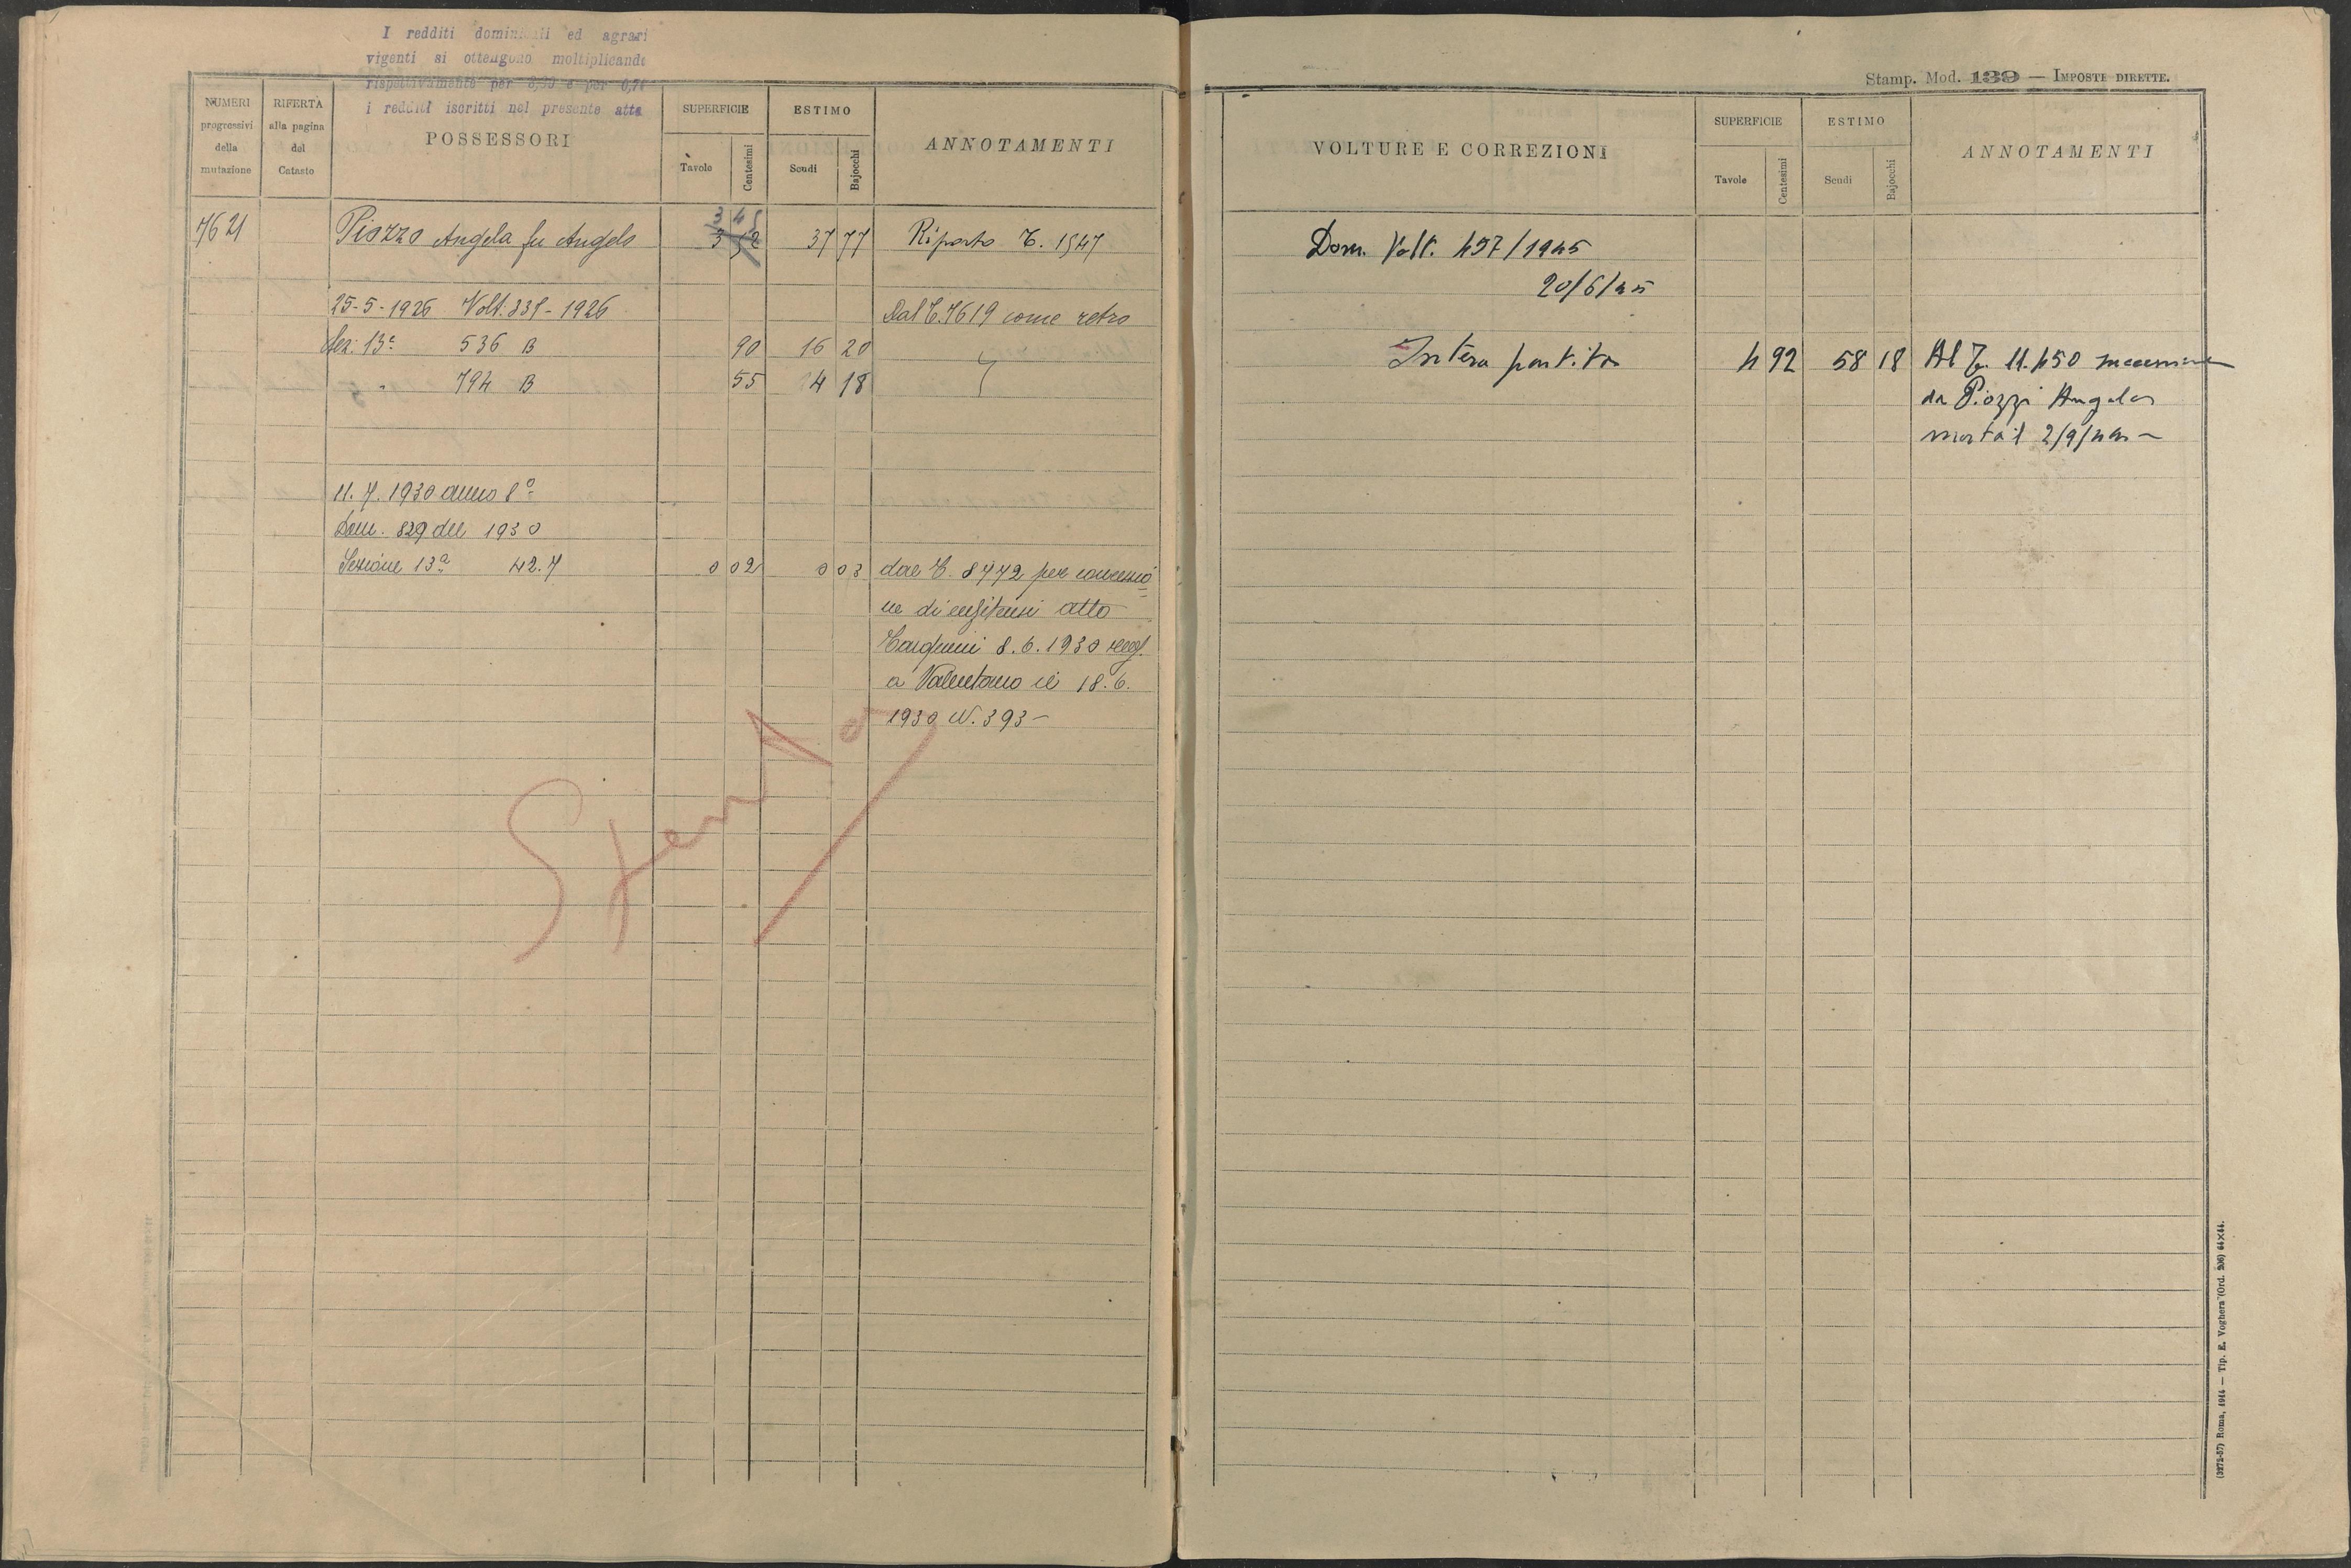 I redditi dominicali ed agrari
vigenti si ottengono moltiplicando
rispettivamente per 8,30 e per 0,74
i redditi iscritti nel presente atto
NUMERI progressivi della mutazione
RIFERTA alla pagina del Catasto
POSSESSORI
SUPERFICIE
Tavole Centesimi
ESTIMO
Scudi Bajocchi
ANNOTAMENTI
7621 Piozzo Angela fu Angelo 3 45 37 77 Riporto T. 1547
25-5-1926 Volt. 331-1926 Dal T. 7619 come retro
Sez. 13ª 536 B 90 16 20
" 794 B 55 4 18
11.7.1930 anno 8º
Dom. 829 del 1930
Sezione 13ª 42.7 0 02 0 03 dal T. 8772 per concessio
ne di enfiteusi atto
8.6.1930 reg.
a Valentano il 18.6.
1930 N. 393-
Stampato: Stamp. Mod. 139 — IMPOSTE DIRETTE.
VOLTURE E CORREZIONI
SUPERFICIE
Tavole Centesimi
ESTIMO
Scudi Bajocchi
ANNOTAMENTI
Dom. Volt. 497/1945
20/6/45
Intera partita 4 92 58 18 Al T. 11.450 successione
da Piozzi Angela
morta il 2/9/
(3272-57) Roma, 1944 — Tip. E. Voghera (Ord. 206) 44×44.